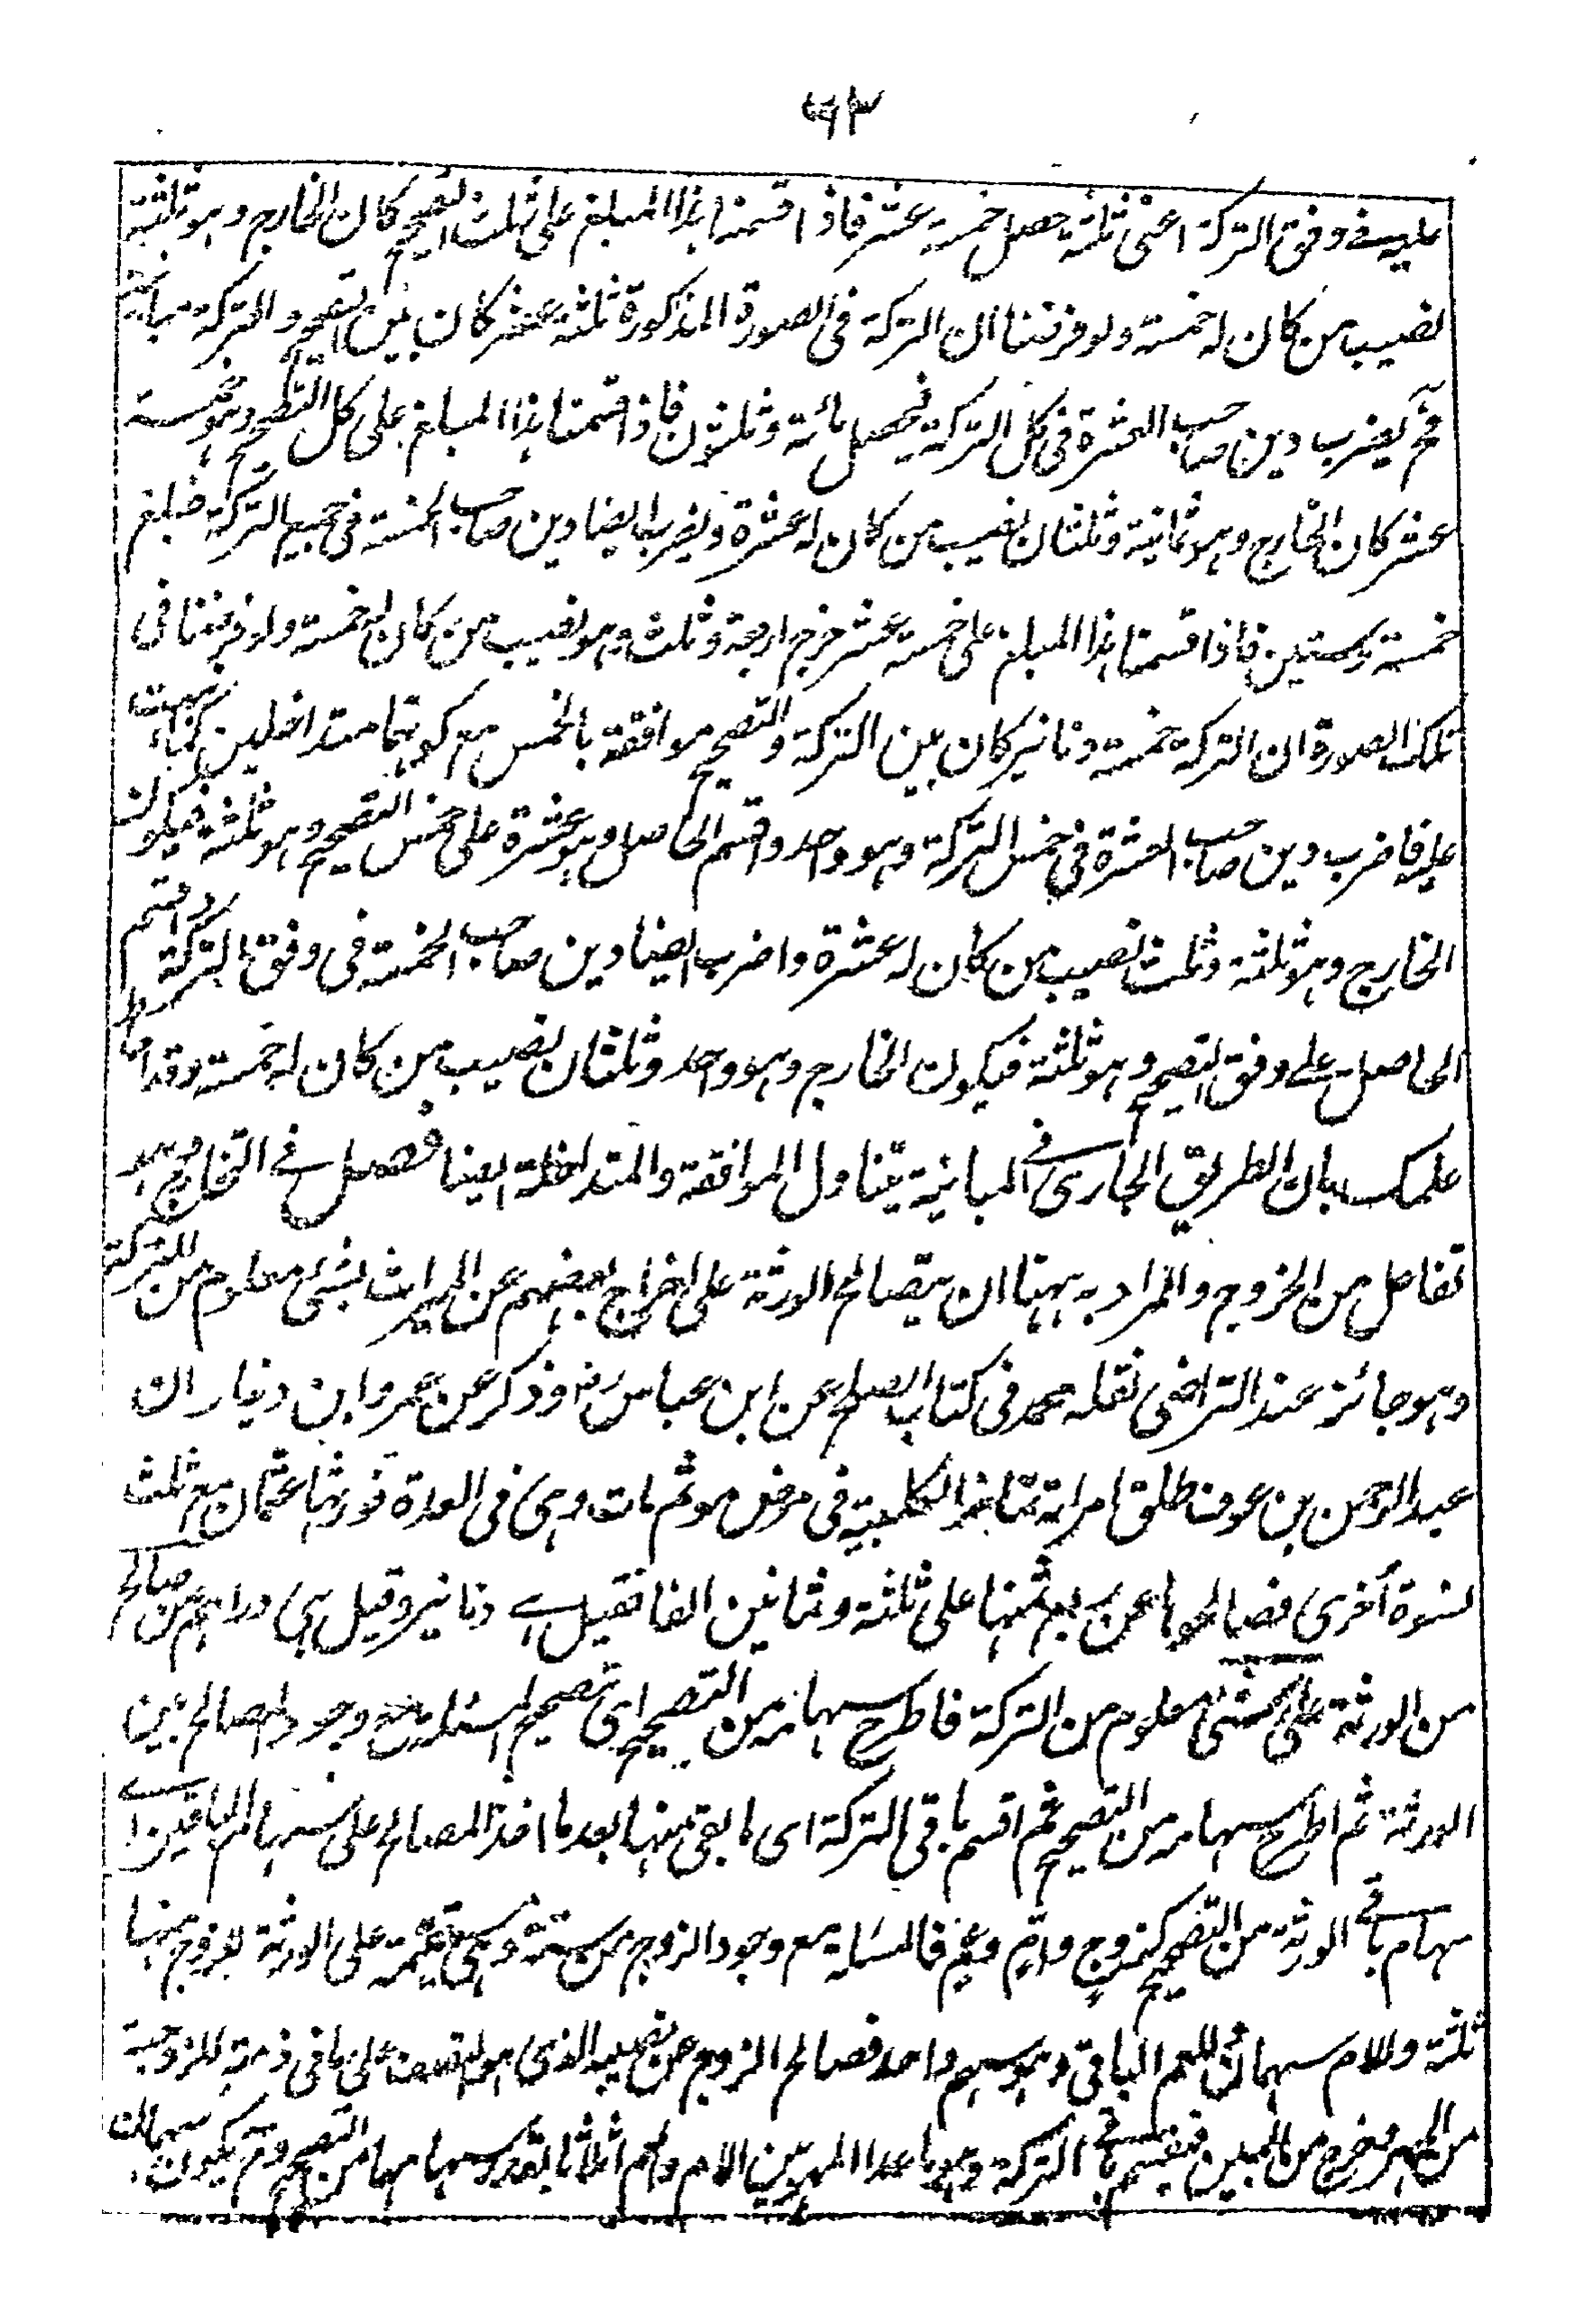 ٦٣
عليه في وفق التركة اعنى ثلثة حصل خمسة عشر فاذا قسمنا هذا المبلغ على ثلث التصحيح كان الخارج وهو ثلثة
نصيب من كان له خمسة ولو فرضنا ان التركة فى الصورة المذكورة ثلثة عشر كان بين التصحيح والتركة مباينة
فح يضرب دين صاحب العشرة فى كل التركة فيحصل مائة وثلثون فاذا قسمنا هذا المبلغ على كل التصحيح وهو خمسة
عشر كان الخارج وهو ثمانية وثلثان نصيب من كان له عشرة ويضرب ايضا دين صاحب الخمسة فى جميع التركة فبلغ
خمسة وستين فاذا قسمنا هذا المبلغ على خمسة عشر خرج اربعة وثلث وهو نصيب من كان له خمسة ولو فرضنا فى
تلك الصورة ان التركة خمسة دنانير كان بين التركة والتصحيح موافقة بالخمس مع كونهما متداخلين كما نبهت
عليه فاضرب دين صاحب العشرة فى خمس التركة وهو واحد واقسم الحاصل وهو عشرة على خمس التصحيح وهو ثلثة فيكون
الخارج وهو ثلثة وثلث نصيب من كان له عشرة واضرب ايضا دين صاحب الخمسة فى وفق التركة واقسم
الحاصل على وفق التصحيح وهو ثلثة فيكون الخارج وهو واحد وثلثان نصيب من كان له خمسة وقد احاط
علمك بان الطريق الجارى فى المباينة يتناول الموافقة والمتداخلة ايضا فصل فى التخارج هو
تفاعل من الخروج والمراد به ههنا ان يتصالح الورثة على اخراج بعضهم عن الميراث بشئ معلوم من التركة
وهو جائز عند التراضى نقله محمد فى كتاب الصلح عن ابن عباس رض وذكر عن عمرو ابن دينار ان
عبد الرحمن بن عوف طلق امراته تماضر الكلبية فى مرض موته ثم مات وهى فى العدة فورثها عثمان مع ثلث
نسوة أخرى فصالحوها عن ربع ثمنها على ثلثة وثمانين الفا فقيل هى دنانير وقيل هى دراهم من صالح
من الورثة على شئ معلوم من التركة فاطرح سهامه من التصحيح اى تصحيح المسئلة مع وجود المصالح بين
الورثة ثم اطرح سهامه من التصحيح ثم اقسم باقى التركة اى ما بقى منها بعد ما اخذ المصالح على سهام الباقين اى
سهام باقى الورثة من التصحيح كزوج وام وعم فالمسئلة مع وجود الزوج من ستة وهى مستقيمة على الورثة للزوج منها
ثلثة وللام سهمان وللعم الباقى وهو سهم واحد فصالح الزوج عن نصيبه الذى هو النصف على ما فى ذمته للزوجة
من المهر وخرج من البين فيقسم باقى التركة وهو ما عدا المهر بين الام والعم اثلاثا بقدر سهامهما من التصحيح وح يكون سهمان